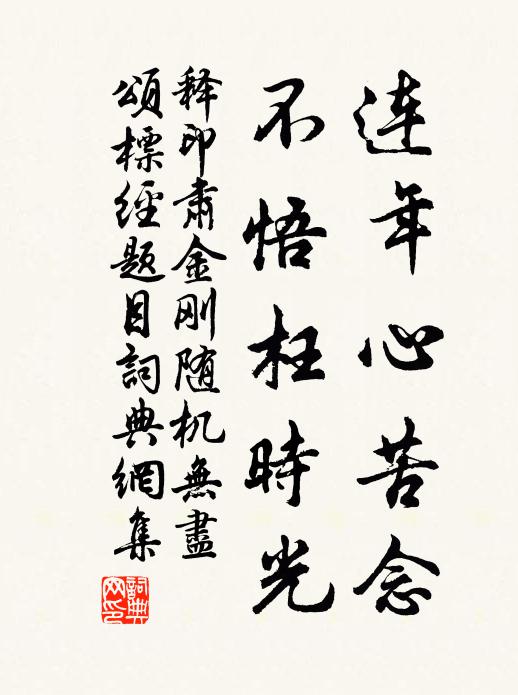 連年心苦念
不悟枉時光
释印肅金刚随机無盡
頌標經題目詞典網集
詞典
网印